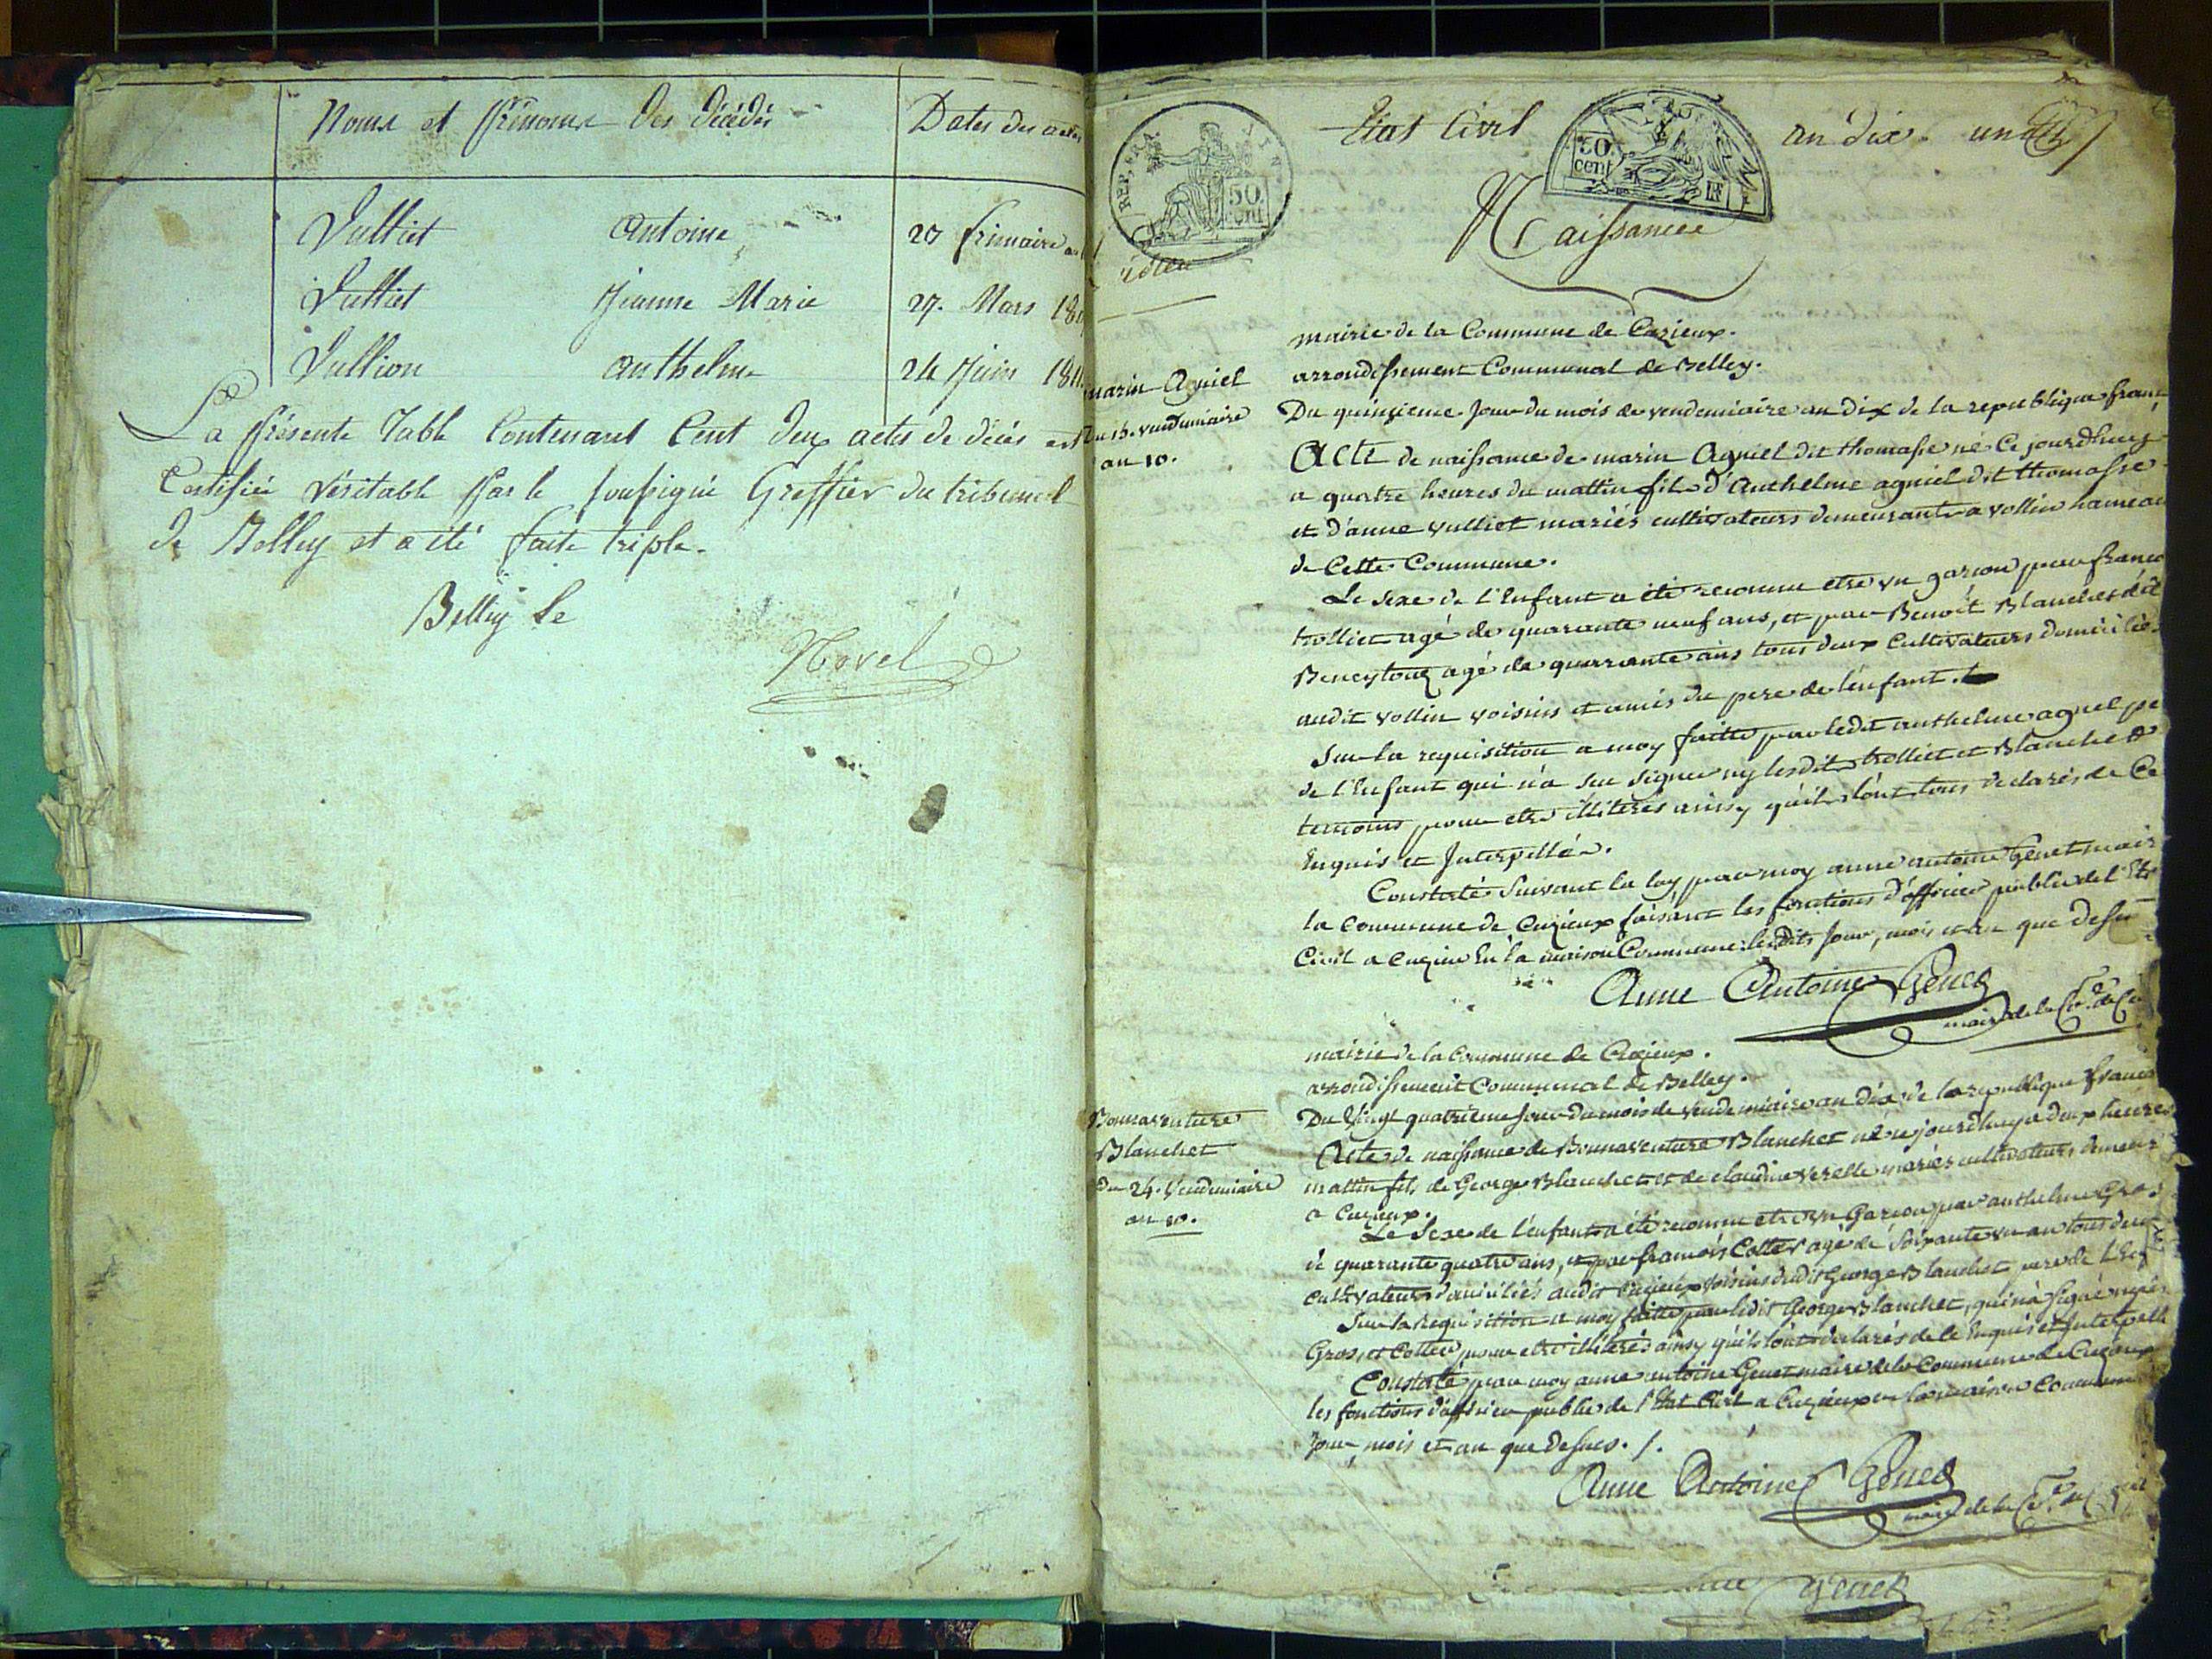 Noms et Prénoms Des Décédés
Dates des actes
Vulliet Antoine 20 frimaire an
Vulliet Jeanne Marie 27. Mars 18
Vullion Anthelme 24 Juin 181
La présente Table Contenant Cent Deux actes de décès est
Certifiée véritable par le soussigné Greffier du tribunal
De Belley et a été faite triple.
Belley le
Morel
Etat Civil an dix. un
REP. FRA
50 cent
30 cent RF
Naissances
marin Agniel
Du 15. vendemiaire
an 10.
mairie de la Commune de Cuzieux.
arrondissement Communal de Belley.
Du quinzieme Jour du mois de vendemiaire an dix de la republique franc
Acte de naissance de marin Agniel dit thomasse né Ce jourdhuy
a quatre heures du mattin fils d'Anthelme agniel dit thomasse
et d'anne vulliet mariés cultivateurs demeurants a vollin hameau
de Cette Commune.
Le sexe de l'Enfant a été reconnu etre un garcon par franco
trolliet agé de quarante neuf ans, et par Benoit Blanchet dit
agé de quarante ans tous deux Cultivateurs domicilié
audit vollin voisins et amis du pere de l'enfant.
Sur la requisition a moy faitte par ledit anthelme agniel pe
de l'Enfant qui n'a su signer ny lesdits trolliet et Blanchet
temoins pour etre illiterés ainsy qu'ils l'ont tous declarés de Ce
Enquis et Interpellés.
Constaté suivant la loy par moy anne antoine Genet mair
la commune de Cuzieux faisant les fonctions d'officier public de l'Et
Civil a Cuzieu En la maison Commune lesdits Jour, mois et an que dessu
Anne Antoine Genet
maire de la Cne de Cu
Bonnaventure
Blanchet
Du 24. Vendemiaire
an 10.
mairie de la Commune de Cuzieux.
arrondissement Communal de Belley.
Du Vingt quatrieme Jour du mois de Vendemiaire an dix de la republique franca
Acte de naissance de Bonnaventure Blanchet né cejourdhuy a deux heures
mattin fils de George Blanchet et de claudine verelle mariés cultivateurs demeur
a Cuzieux.
Le Sexe de l'enfant a été reconnu etre un Garcon par anthelme Gros
de quarante quatre ans, et par francois Collet agé de Soixante un an tous deux
cultivateurs domiciliés audit Cuzieux voisins dudit George Blanchet pere de l'En
Sur la requisition a moy faitte par ledit George Blanchet, qui n'a signé
Gros, et Collet pour etre illiterés ainsy qu'ils l'ont declarés de Ce Enquis et Interpellé
Constaté par moy anne antoine Genet maire de la Commune de Cuzieux
les fonctions d'officier public de l'Etat Civil a Cuzieux en la maison Commune
Jour, mois et an que dessus. /.
Anne Antoine Genet
maire de la Cne de
Genet